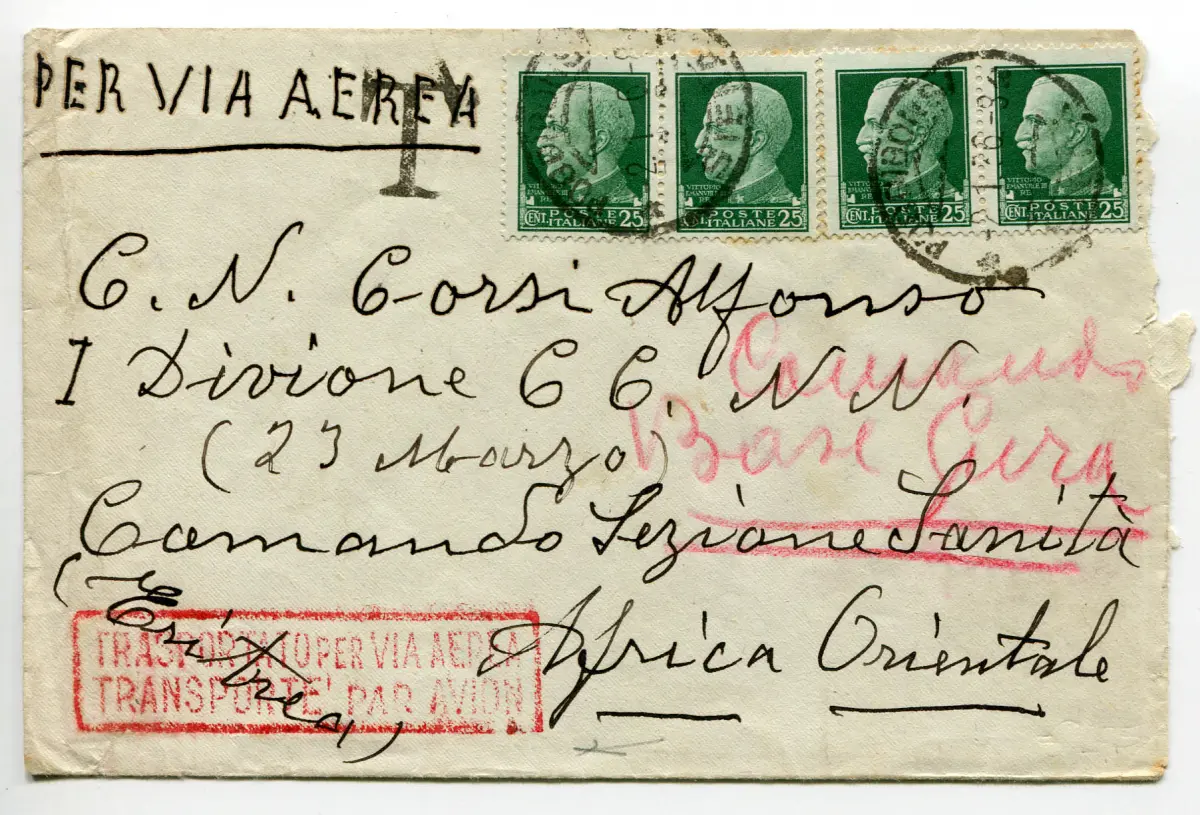 PER VIA AEREA
T
VITTORIO EMANUELE III RE
CENT. POSTE ITALIANE 25
VITTORIO EMANUELE III RE
CENT. POSTE ITALIANE 25
VITTORIO EMANUELE III RE
CENT. POSTE ITALIANE 25
VITTORIO EMANUELE III RE
CENT. POSTE ITALIANE 25
C. N. Corsi Alfonso
I Divione C C. N N.
(23 Marzo)
Comando
Base Gura
Comando Sezione Sanità
(Eritrea)
Africa Orientale
TRASPORTATO PER VIA AEREA
TRANSPORTE' PAR AVION